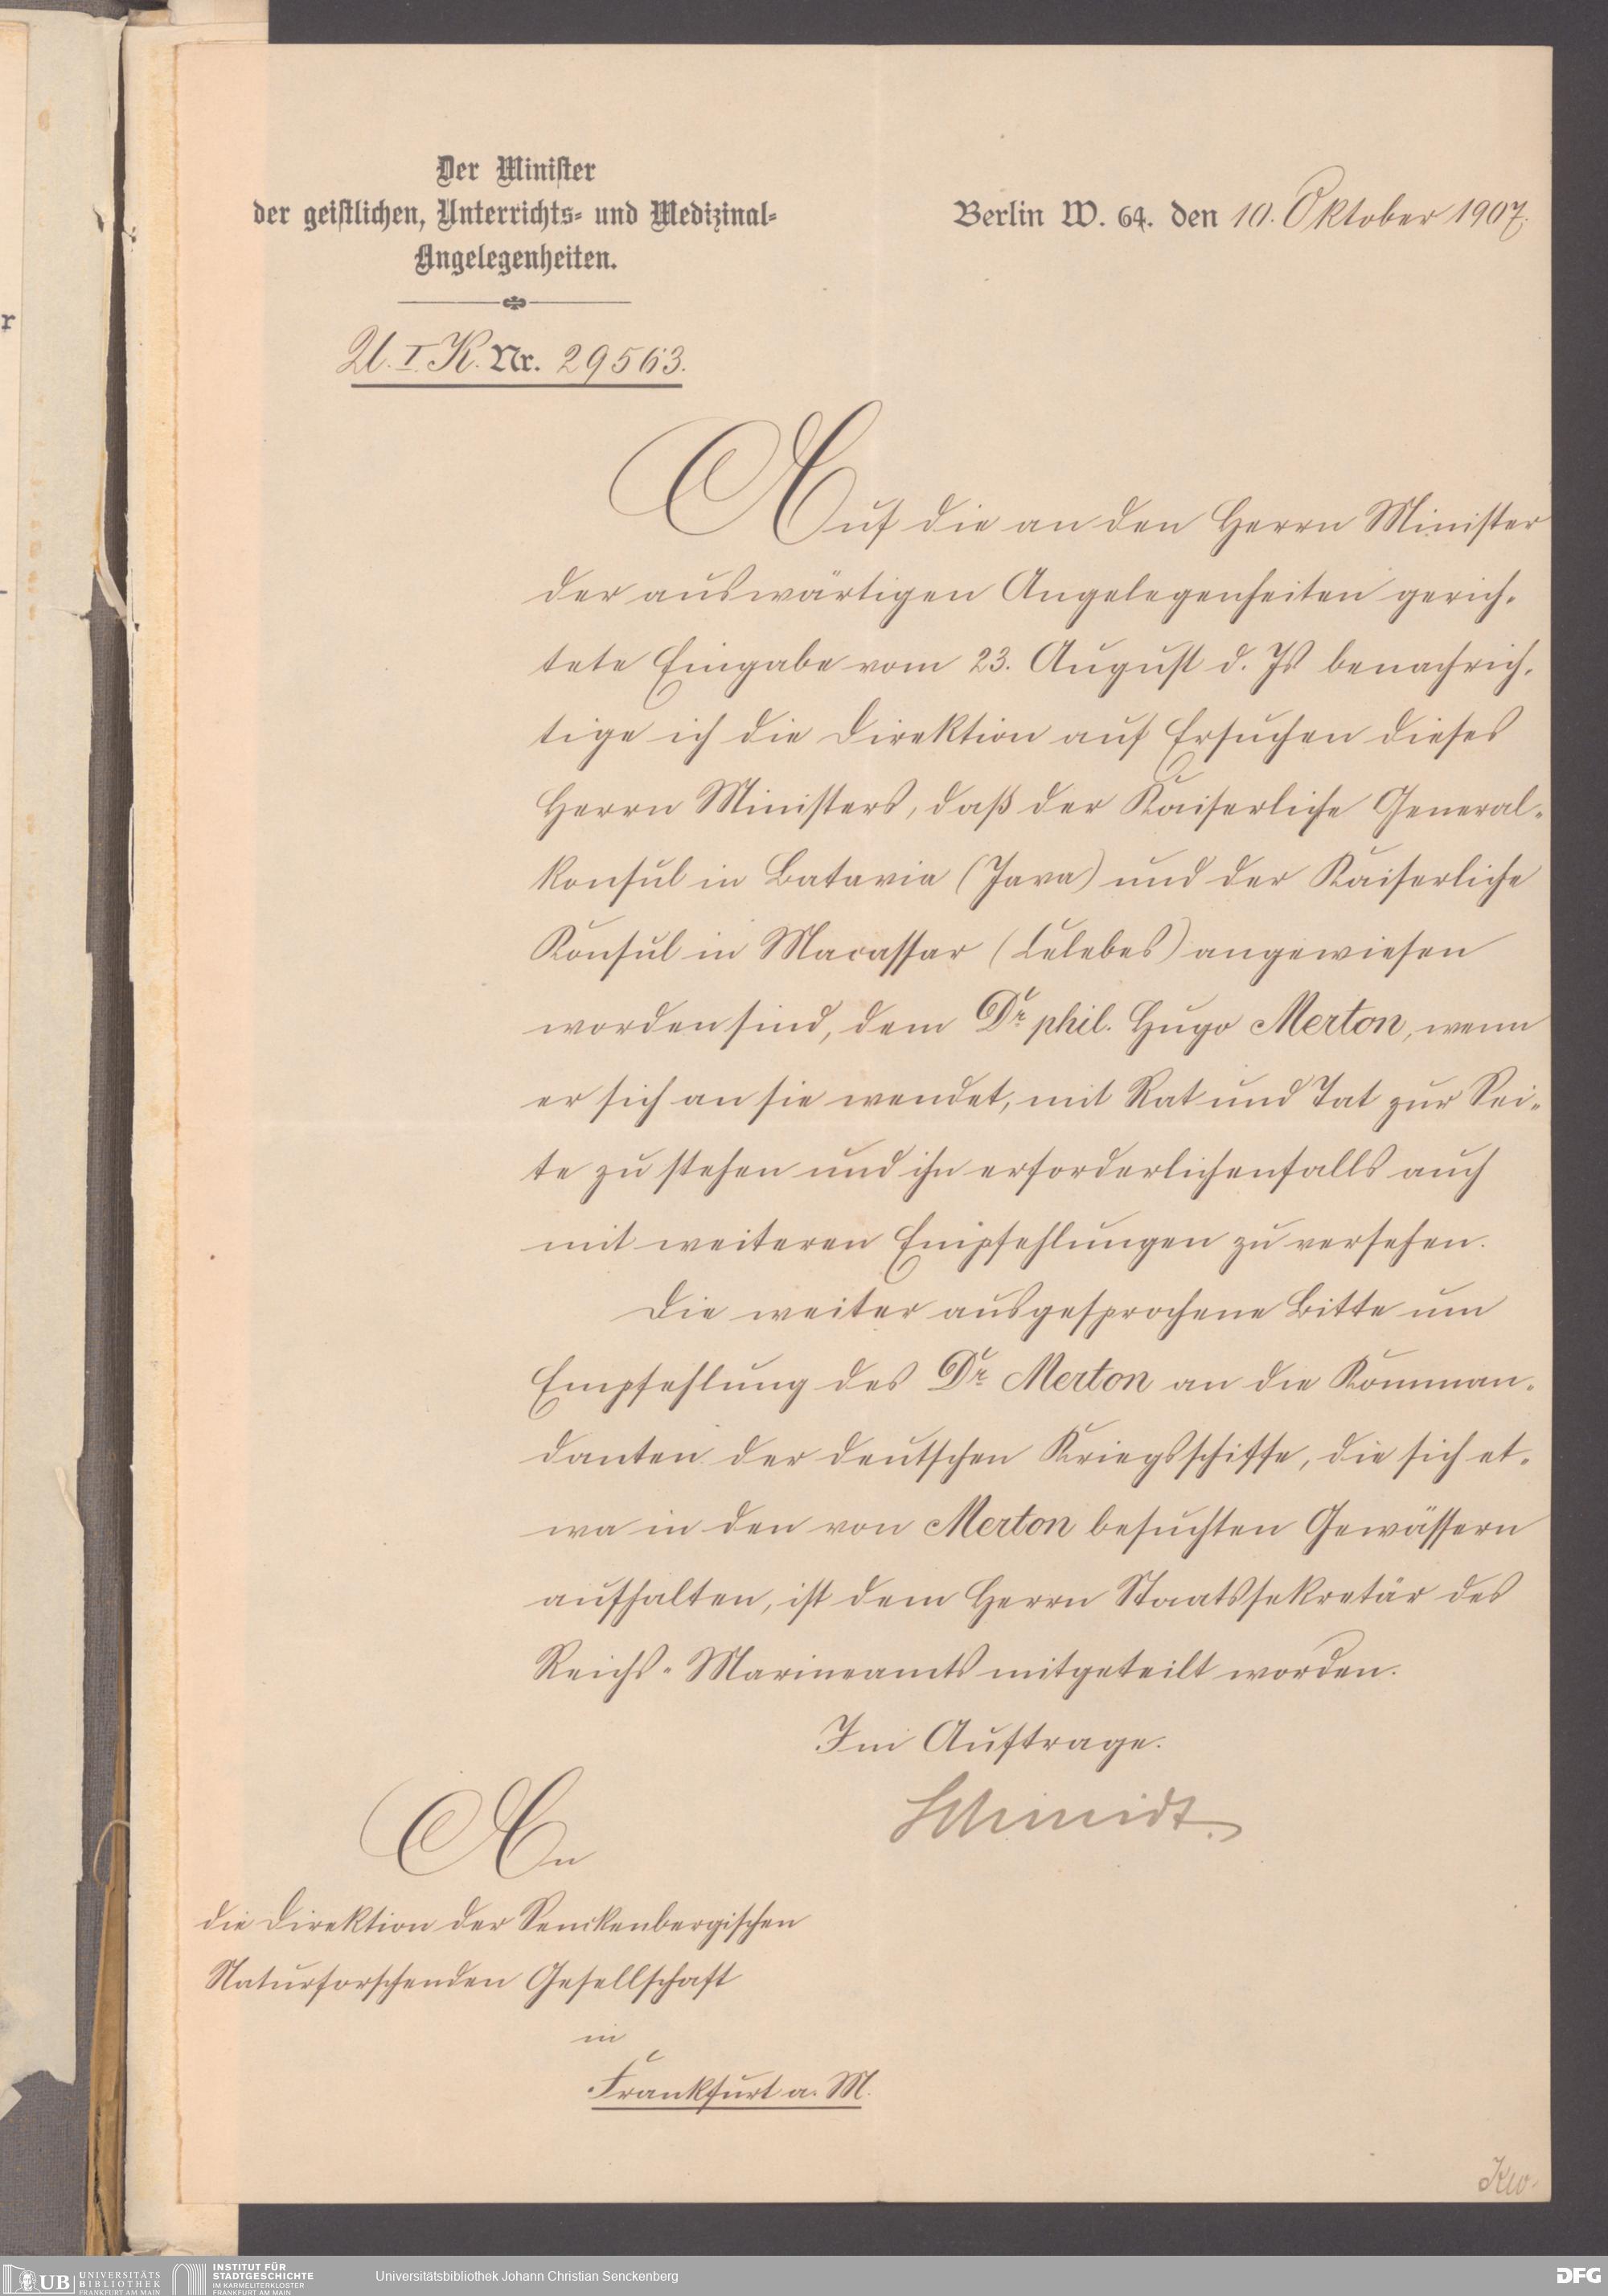 Der Minister
der geistlichen, Unterrichts- und Medizinal-
Angelegenheiten.
Berlin W. 64. den 10. Oktober 1907.
U. I. K. Nr. 29563.
Auf die an den Herrn Minister
der auswärtigen Angelegenheiten gerich-
tete Eingabe vom 23. August d. Js benachrich-
tige ich die Direktion auf Ersuchen dieses
Herrn Ministers, daß der Kaiserliche General-
konsul in Batavia (Java) und der Kaiserliche
Konsul in Macassar (Celebes) angewiesen
worden sind, dem Dr. phil. Hugo Merton, wenn
er sich an sie wendet, mit Rat und Tat zur Sei-
te zu stehen und ihn erforderlichenfalls auch
mit weiteren Empfehlungen zu versehen.
Die weiter ausgesprochene Bitte um
Empfehlung des Dr. Merton an die Komman-
danten der deutschen Kriegsschiffe, die sich et-
wa in den von Merton besuchten Gewässern
aufhalten, ist dem Herrn Staatssekretär des
Reichs-Marineamts mitgeteilt worden.
Im Auftrage.
Schmidt.
An
die Direktion der Senckenbergischen
Naturforschenden Gesellschaft
in
Frankfurt a. M.
r
UB UNIVERSITÄTS
BIBLIOTHEK
FRANKFURT AM MAIN
INSTITUT FÜR
STADTGESCHICHTE
IM KARMELITERKLOSTER
FRANKFURT AM MAIN
Universitätsbibliothek Johann Christian Senckenberg
DFG